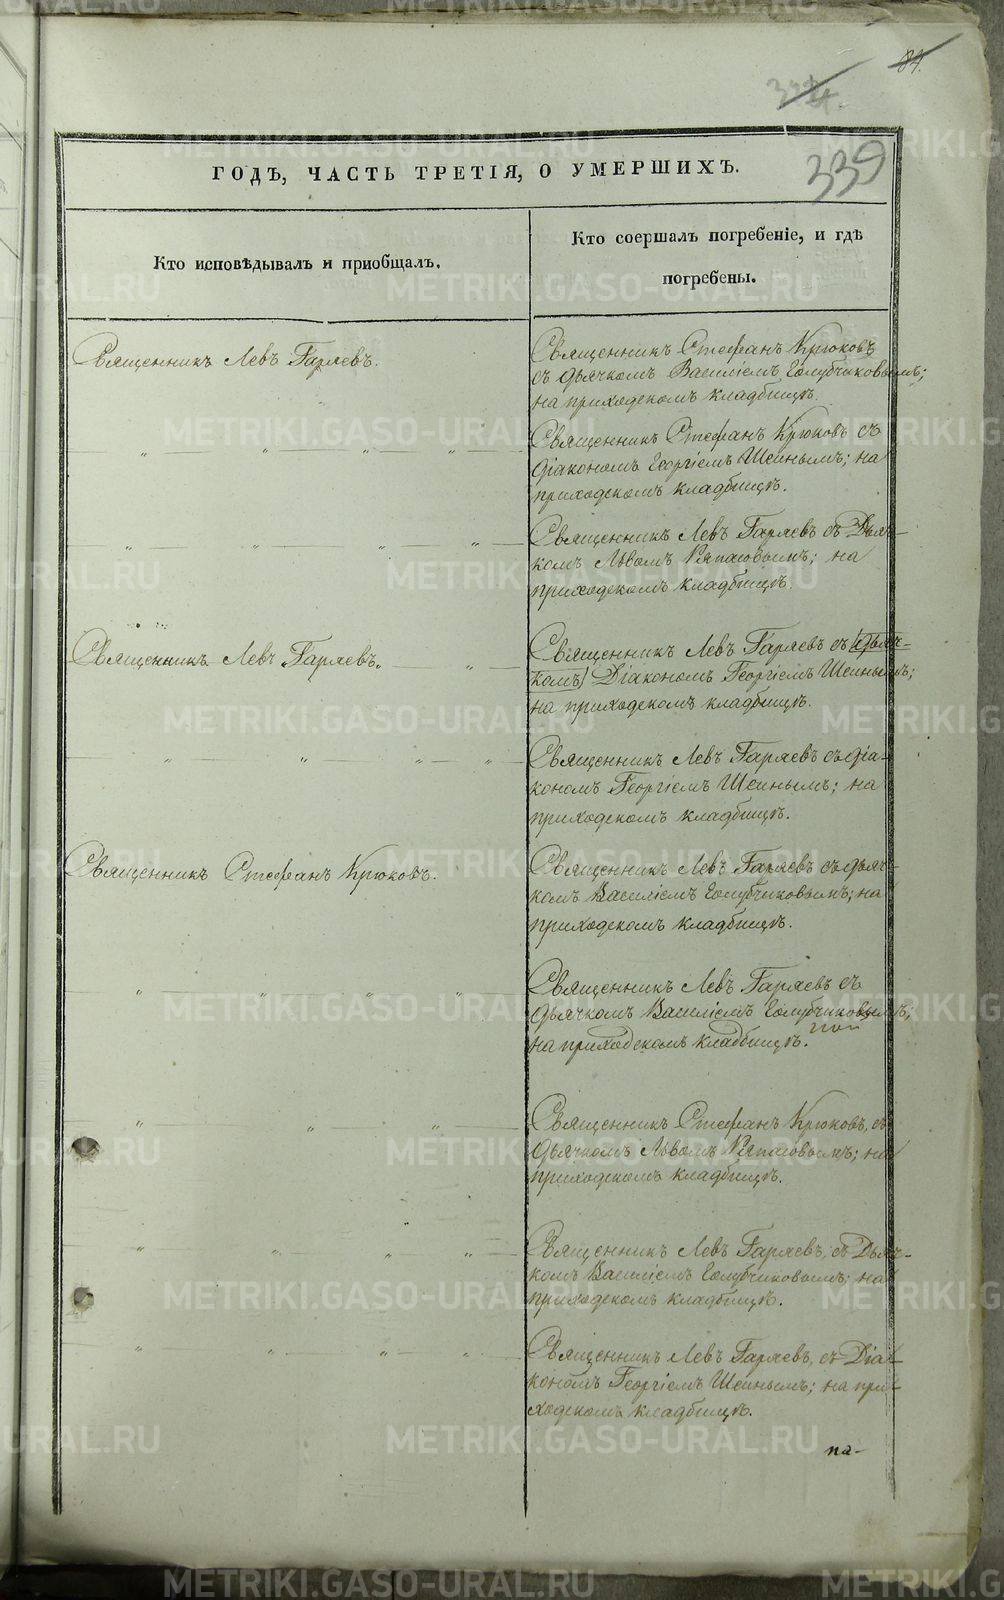 84.
334.
339
ГОДЪ, ЧАСТЬ ТРЕТІЯ, О УМЕРШИХЪ.
Кто исповѣдывалъ и приобщалъ.
Кто соершалъ погребеніе, и гдѣ
погребены.
Священникъ Левъ Гаряевъ.
Священникъ Стефанъ Крюковъ
съ дьячкомъ Василіемъ Голубчиковымъ;
на приходскомъ кладбищѣ.
„ — „ — „ — „ —
Священникъ Стефанъ Крюковъ съ
діакономъ Георгіемъ Шеинымъ; на
приходскомъ кладбищѣ.
„ — „ — „ — „ —
Священникъ Левъ Гаряевъ съ Дьяч-
комъ Львомъ Ряпасовымъ; на
приходскомъ кладбищѣ.
Священникъ Левъ Гаряевъ. — „ —
Священникъ Левъ Гаряевъ съ (дьяч-
комъ) Діакономъ Георгіемъ Шеинымъ;
на приходскомъ кладбищѣ.
„ — „ — „ — „ —
Священникъ Левъ Гаряевъ съ діа-
кономъ Георгіемъ Шеинымъ; на
приходскомъ кладбищѣ.
Священникъ Стефанъ Крюковъ.
Священникъ Левъ Гаряевъ съ дьяч-
комъ Василіемъ Голубчиковымъ; на
приходскомъ кладбищѣ.
„ — „ — „ — „ —
Священникъ Левъ Гаряевъ съ
дьячкомъ Василіемъ Голубчиковымъ;
на приходскомъ кладбищѣ.
„ — „ — „ —
Священникъ Стефанъ Крюковъ, съ
дьячкомъ Львомъ Ряпасовымъ; на
приходскомъ кладбищѣ.
„ — „ — „ — „ —
Священникъ Левъ Гаряевъ, съ Дьяч-
комъ Василіемъ Голубчиковымъ; на
приходскомъ кладбищѣ.
„ — „ — „ — „ —
Священникъ Левъ Гаряевъ, съ Діа-
кономъ Георгіемъ Шеинымъ; на при-
ходскомъ кладбищѣ.
па-
METRIKI.GASO-URAL.RU